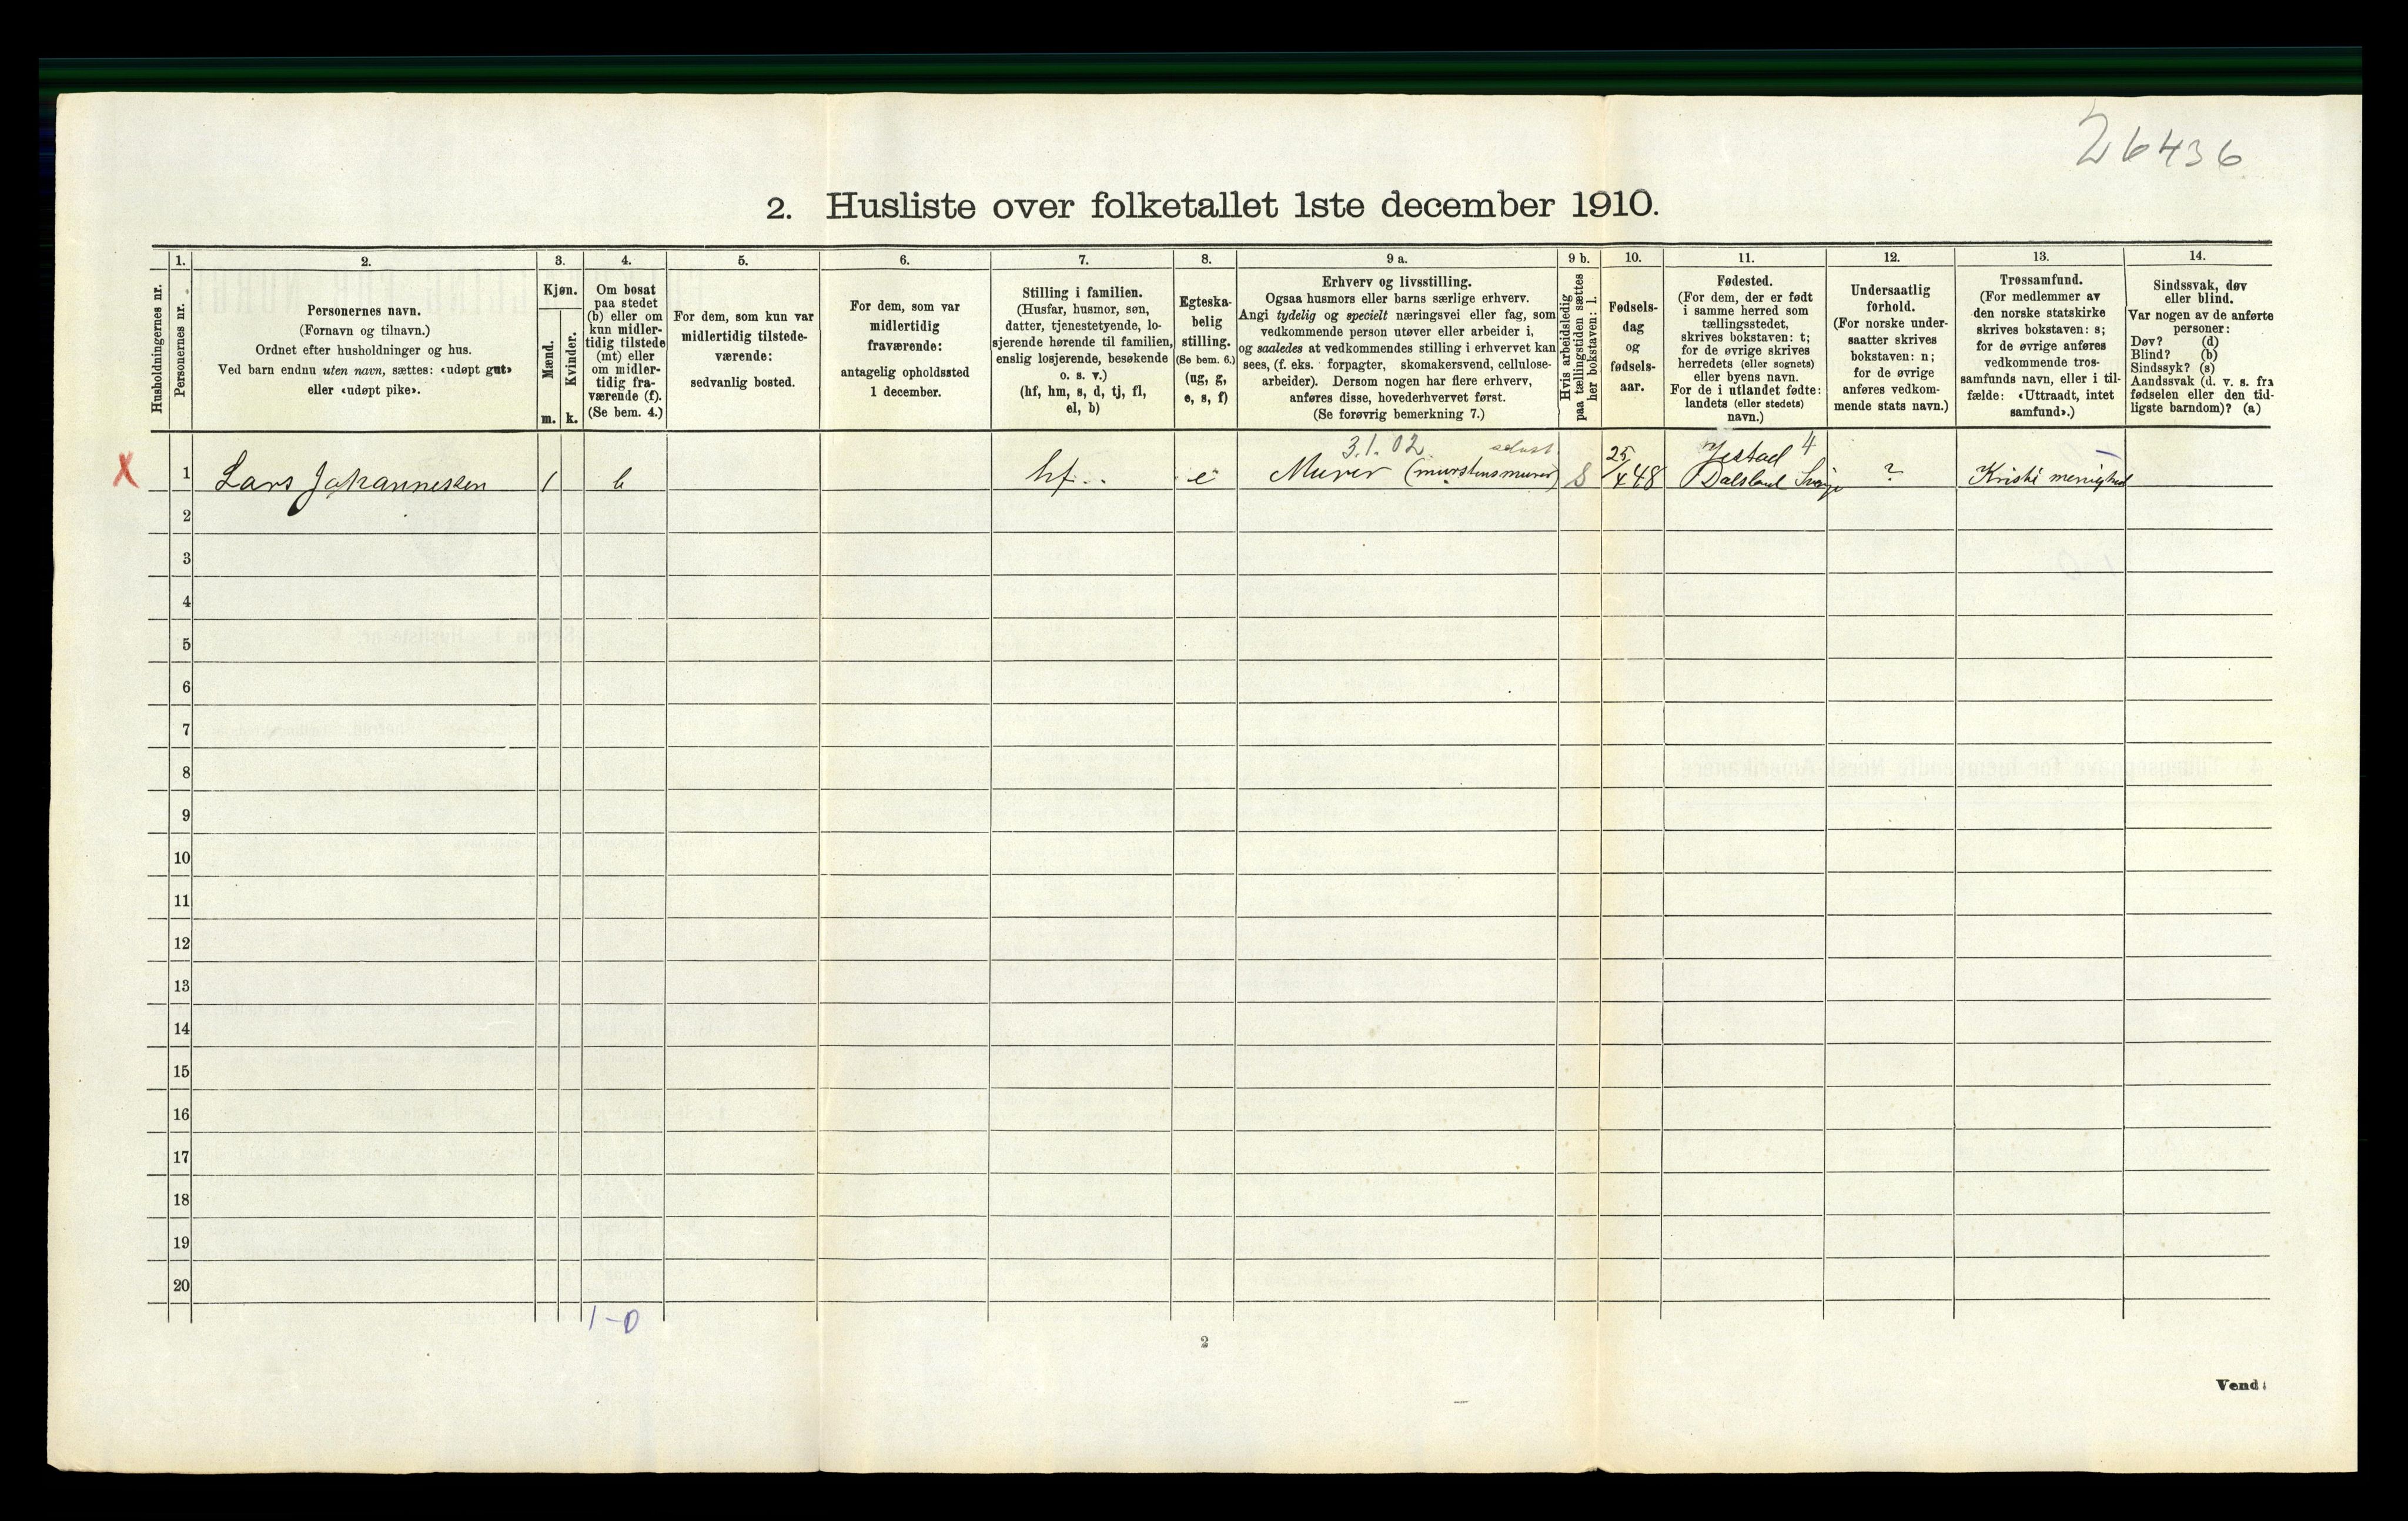 26436
2. Husliste over folketallet 1ste december 1910.
Husholdningernes nr.
1.
Personernes nr.
2.
Personernes navn.
(Fornavn og tilnavn.)
Ordnet efter husholdninger og hus.
Ved barn endnu uten navn, sættes: «udøpt gut»
eller «udøpt pike».
3.
Kjøn.
Mænd.
m.
Kvinder.
k.
4.
Om bosat
paa stedet
(b) eller om
kun midler-
tidig tilstede
(mt) eller
om midler-
tidig fra-
værende (f).
(Se bem. 4.)
5.
For dem, som kun var
midlertidig tilstede-
værende:
sedvanlig bosted.
6.
For dem, som var
midlertidig
fraværende:
antagelig opholdssted
1 december.
7.
Stilling i familien.
(Husfar, husmor, søn,
datter, tjenestetyende, lo-
sjerende hørende til familien,
enslig losjerende, besøkende
o. s. v.)
(hf, hm, s, d, tj, fl,
el, b)
8.
Egteska-
belig
stilling.
(Se bem. 6.)
(ug, g,
e, s, f)
9 a.
Erhverv og livsstilling.
Ogsaa husmors eller barns særlige erhverv.
Angi tydelig og specielt næringsvei eller fag, som
vedkommende person utøver eller arbeider i,
og saaledes at vedkommendes stilling i erhvervet kan
sees, (f. eks. forpagter, skomakersvend, cellulose-
arbeider). Dersom nogen har flere erhverv,
anføres disse, hovederhvervet først.
(Se forøvrig bemerkning 7.)
9 b.
Hvis arbeidsledig
paa tællingstiden sættes
her bokstaven: l.
10.
Fødsels-
dag
og
fødsels-
aar.
11.
Fødested.
(For dem, der er født
i samme herred som
tællingsstedet,
skrives bokstaven: t;
for de øvrige skrives
herredets (eller sognets)
eller byens navn.
For de i utlandet fødte:
landets (eller stedets)
navn.)
12.
Undersaatlig
forhold.
(For norske under-
saatter skrives
bokstaven: n;
for de øvrige
anføres vedkom-
mende stats navn.)
13.
Trossamfund.
(For medlemmer av
den norske statskirke
skrives bokstaven: s;
for de øvrige anføres
vedkommende tros-
samfunds navn, eller i til-
fælde: «Uttraadt, intet
samfund».)
14.
Sindssvak, døv
eller blind.
Var nogen av de anførte
personer:
Døv? (d)
Blind? (b)
Sindssyk? (s)
Aandssvak (d. v. s. fra
fødselen eller den tid-
ligste barndom)? (a)
3.1.02. 25 4
X 1 Lars Johannessen 1 b hf. e Murer (murstensmurer) S /4 48 Dalsland ? Kristi menighed
2
3
4
5
6
7
8
9
10
11
12
13
14
15
16
17
18
19
20
1-0
2
Vend!